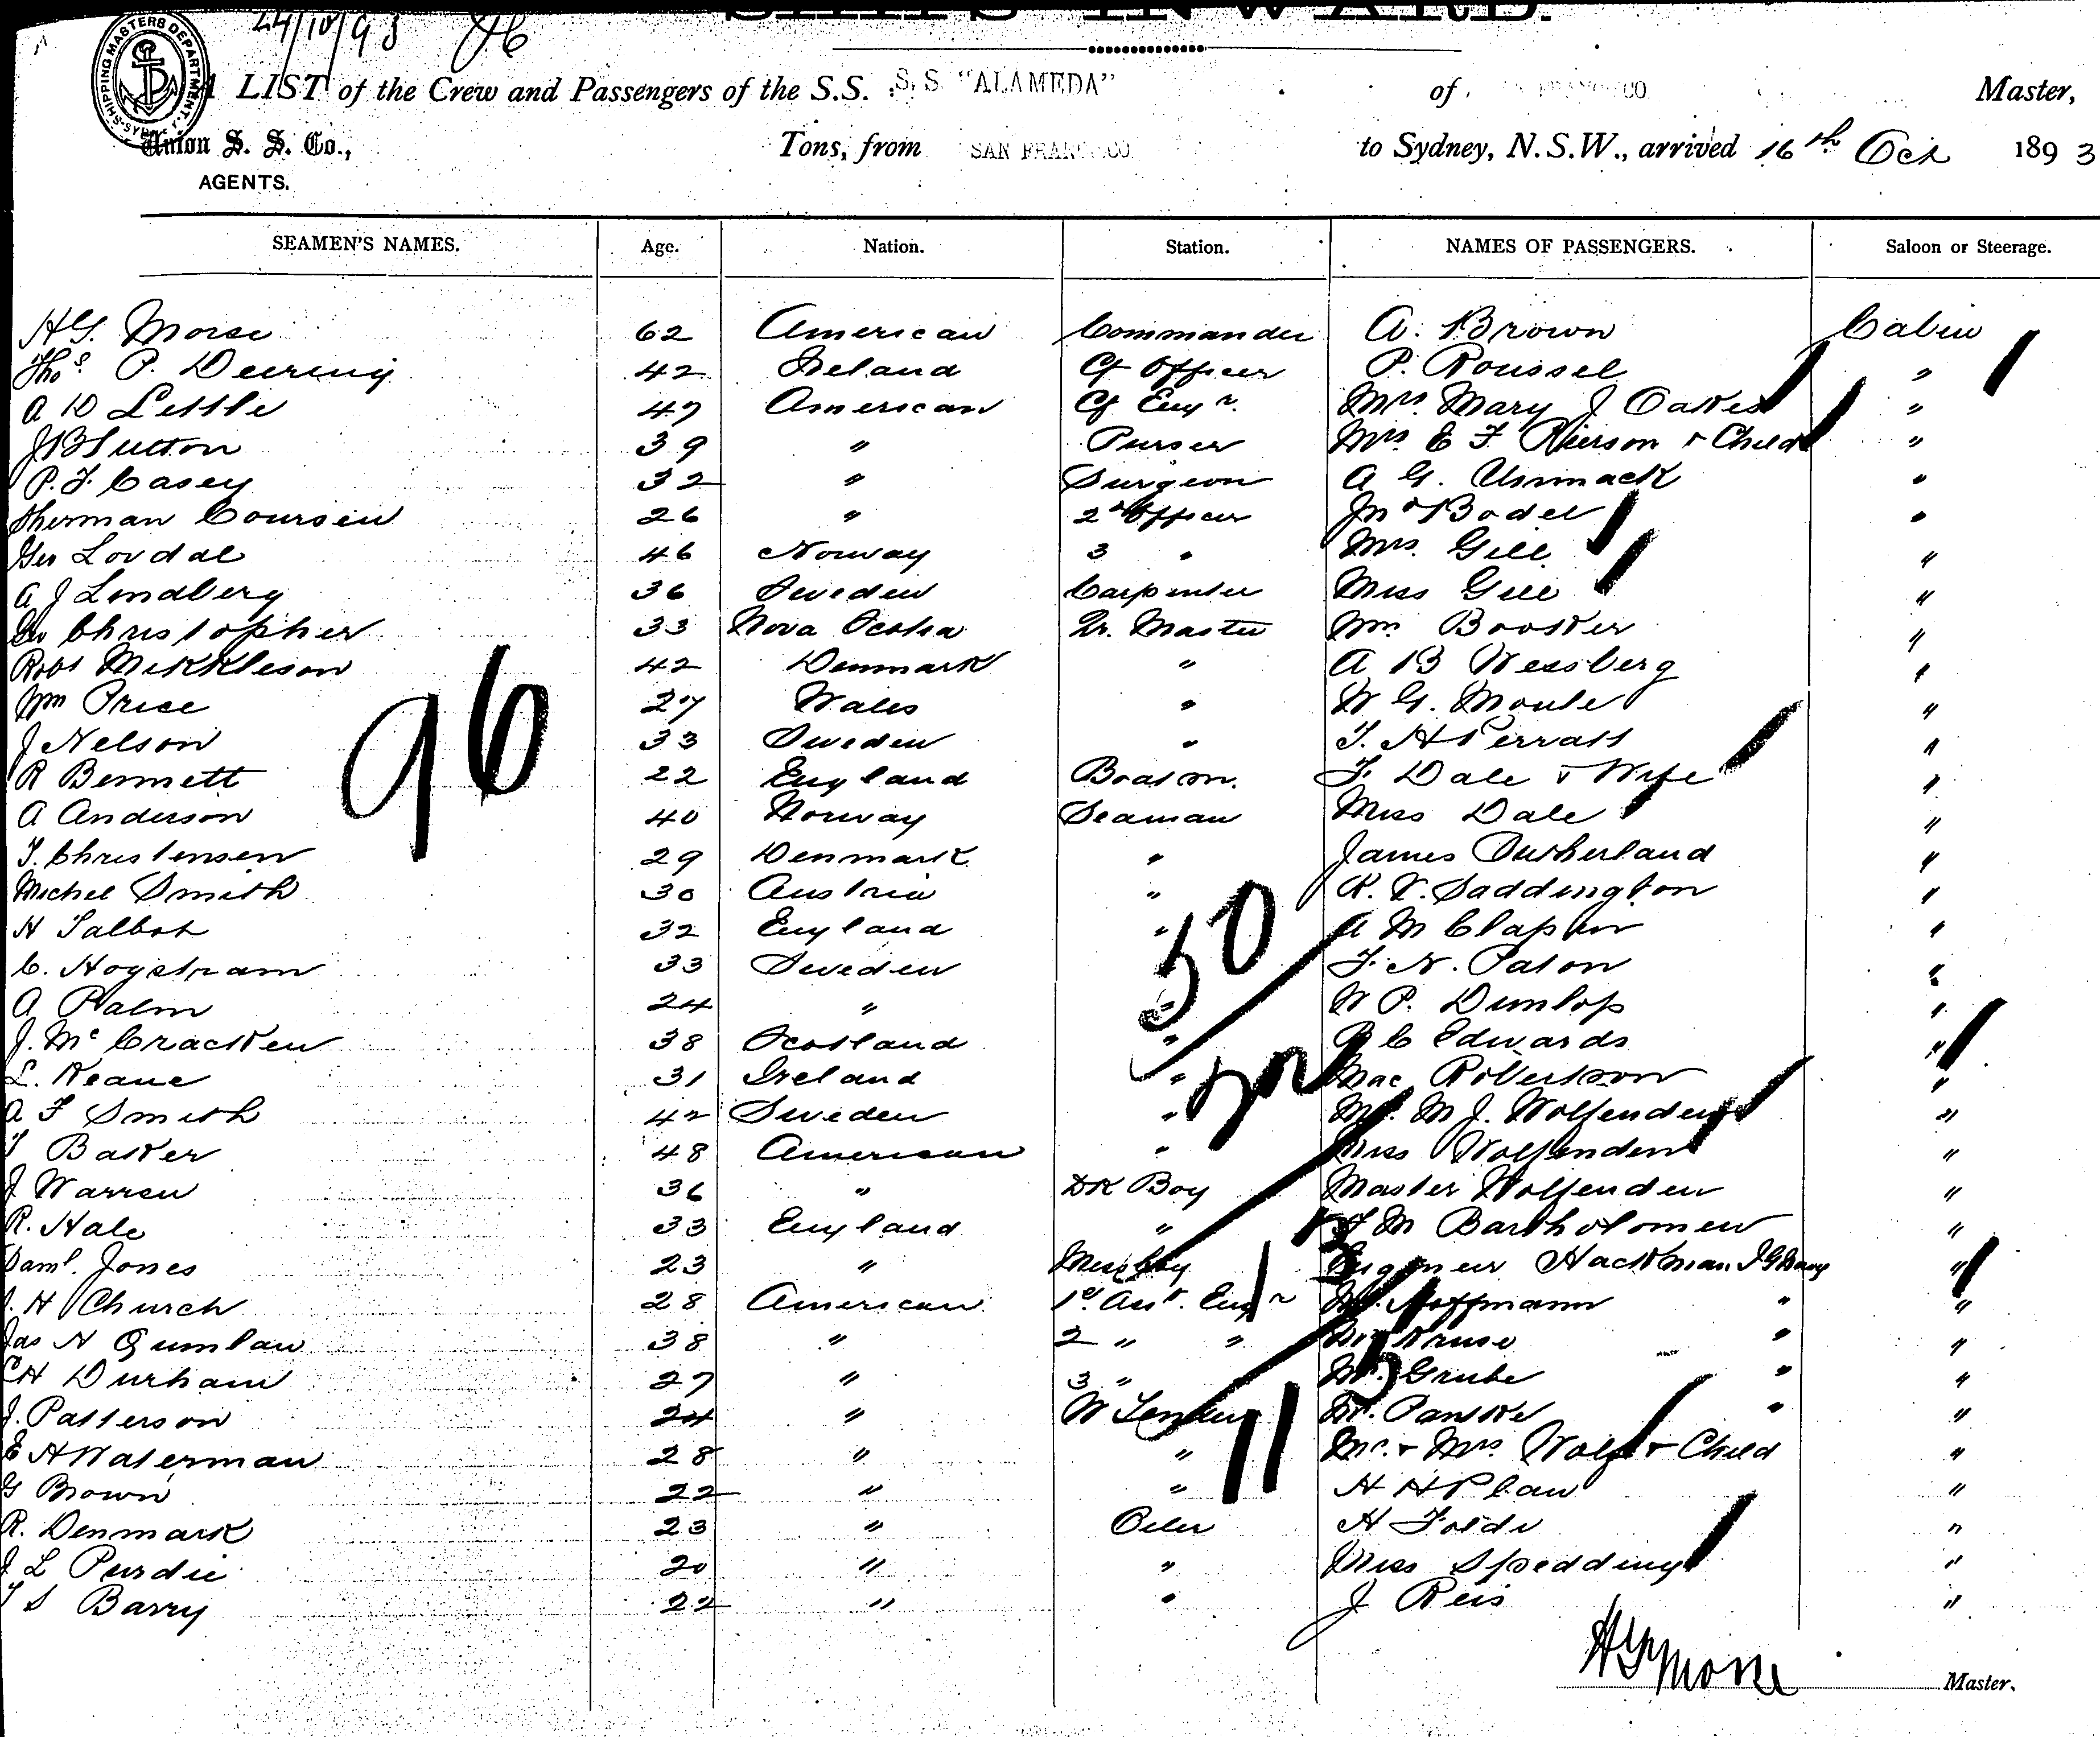 SHIPS INWARD.
24/10/93
SHIPPING MASTERS DEPARTMENT
A LIST of the Crew and Passengers of the S.S. S.S. "ALAMEDA" of Master,
Union S. S. Co., Tons, from SAN FRANCISCO to Sydney, N.S.W., arrived 16th Oct 1893
AGENTS.
SEAMEN'S NAMES. Age. Nation. Station. NAMES OF PASSENGERS. Saloon or Steerage.
HG. Morse 62 American Commander A. Brown Cabin
Thos. P. Deering 42 Ireland Cf Officer P. Roussel "
A D Little 47 American Cf Engr. Mrs. Mary J Oakes "
J B Sutton 39 " Purser Mrs E F Rierson & Child "
P. F. Casey 32 " Surgeon A G. Unmack "
Sherman Coursen 26 " 2d Officer Jno Bodel "
Geo Lovdal 46 Norway 3 " Mrs. Gill "
A J Lindberg 36 Sweden Carpenter Miss Gill "
Geo Christopher 33 Nova Scotia Qr. Master Wm Booker "
Robt Mekkleson 42 Denmark " A B Wessberg "
Wm Price 27 Wales " W G. Moule "
J Nelson 33 Sweden " "
R Bennett 22 England Boatsn. F. Dale & Wife "
A Anderson 40 Norway Seaman Miss Dale "
T. Christensen 29 Denmark " James Sutherland "
Michel Smith 30 Austria " R. V. Saddington "
H Talbot 32 England " A M Clapin "
C. Hogstram 33 Sweden " F. N. Paton "
A Palm 24 " " W P. Dunlop "
J. McCracken 38 Scotland " C Edwards "
L. Keane 31 Ireland " Mac Robertson "
A F Smith 42 Sweden " M J. Wolfenden "
T Baker 48 American " Miss Wolfenden "
J Warren 36 " DK Boy Master Wolfenden "
R. Hale 33 England " M Bartholomew "
Saml. Jones 23 " Mess Boy Engineer Hackman "
H Church 28 American 1st Asst. Engr Hoffmann " "
Jas N Quinlan 38 " 2 " " Kruse " "
CH Durham 27 " 3 " Mr. Grube " "
J. Patterson 24 " W Tender " "
E H Waterman 28 " " Mr. & Mrs Wolf & Child "
G Brown 22 " " H H Plaw "
R. Denmark 23 " Oiler H Foldi "
J L Purdie 20 " " Miss Spedding "
T S Barry 22 " " J Reis "
96
50
11
HG Morse Master.